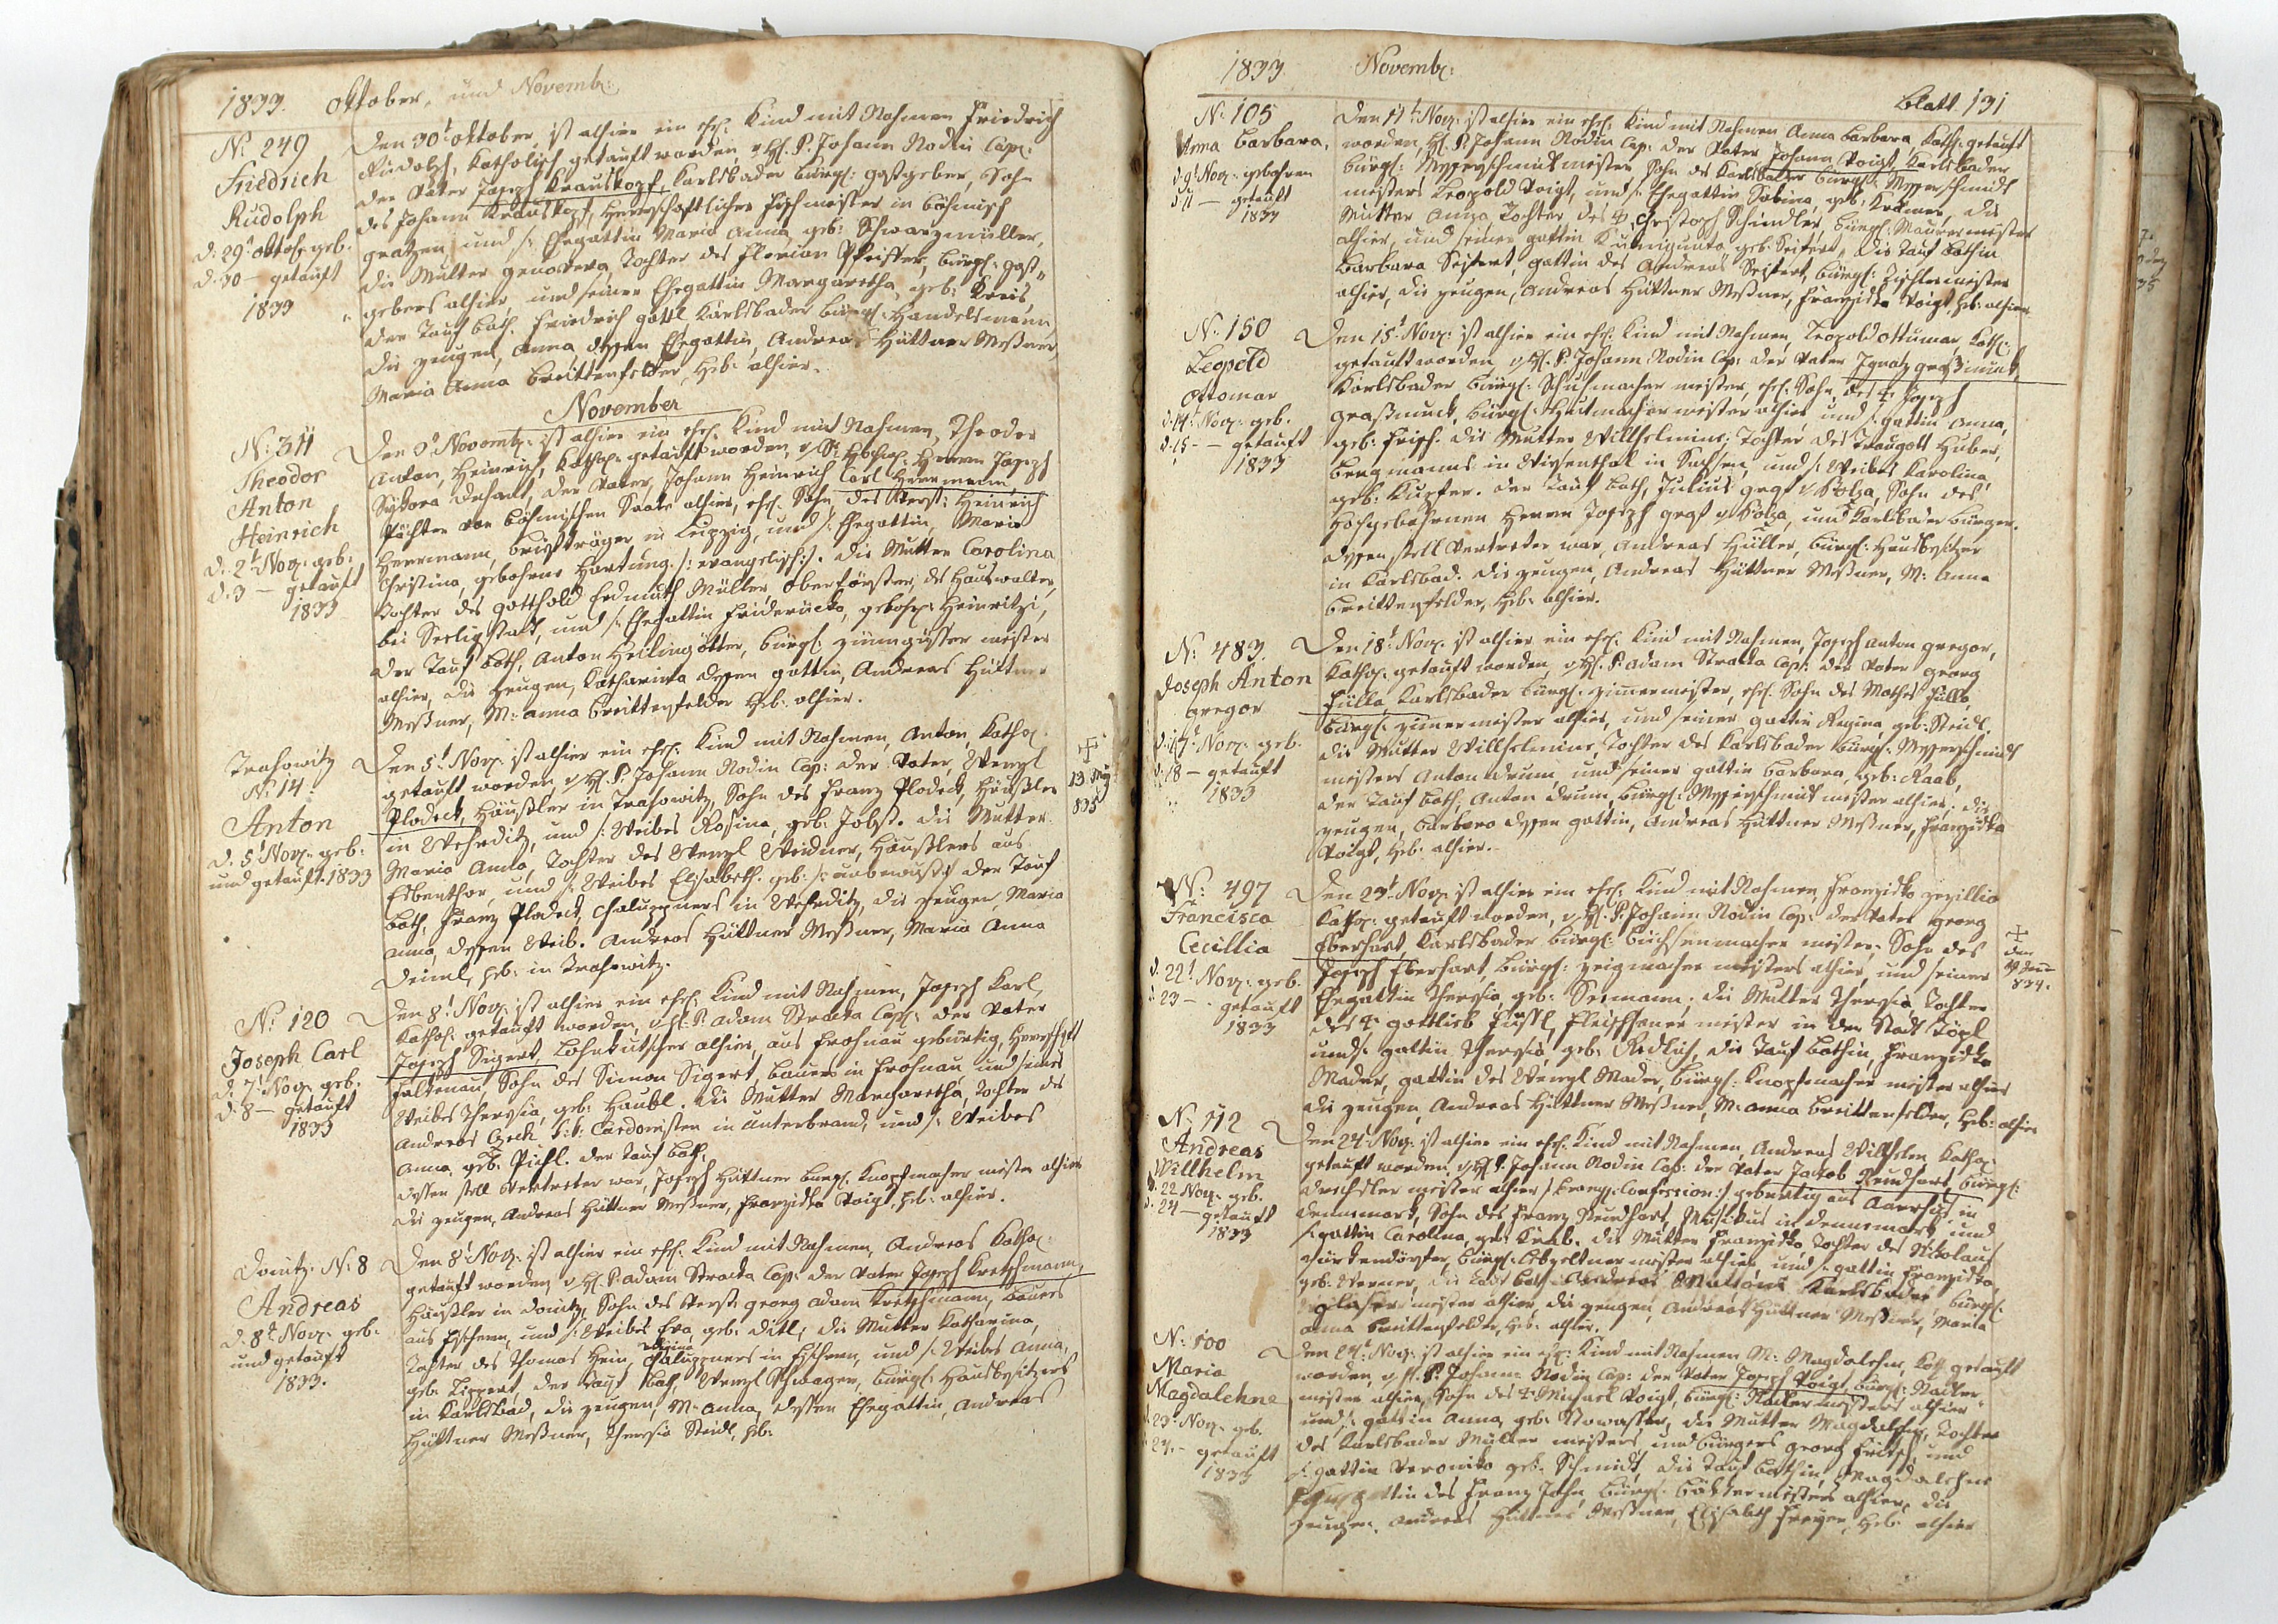 1833. Oktober, und Novembr:
No: 249
Friedrich
Rudolph
d. 29t Oktob: geb.
d. 30 — getauft
1833
Den 30t Oktober, ist alhier ein ehel: Kind mit Nahmen Friedrich
Rudolph, Katholisch getauft worden, P. Johann Nodin Cap:
der Vater Joseph Krauskopf, Karlsbader bürgl: Gastgeber, Sohn
des Johann Krauskopf, Herrschaftlicher Fischmeister in böhmisch
Gratzen, und s: Ehegattin Maria Anna geb: Schwarzmüller,
die Mutter Genovera, Tochter des Florian Pfeister, bürgl: Gast„
gebers alhier, und seiner Ehegattin Margaretha, geb: Kreis,
der Tauf Path. Friedrich Gottl, Karlsbader bürgl: Handelsmann
die Zeugen, Anna dessen Ehegattin, Andreas Hüttner Meßner,
Maria Anna Breittenfelder, Heb: alhier.
November
No: 311
Theodor
Anton
Heinrich
d. 2t Nov: geb:
d. 3 — getauft
1833
Den 3t Novemb: ist alhier ein ehel: Kind mit Nahmen, Theodor
Anton, Heinrich, Kathol: getauft worden, Herrn Joseph
Sykora Dechant, der Vater, Johann Heinrich Carl Herrmann
Pächter von böhmischen Saale alhier, ehel: Sohn des Verst: Heinrich
Herrmann, Briefträger in Leipzig, und s: Ehegattin, Maria
Christina, gebohrne Hartung. /: evangelisch :/. Die Mutter Carolina
Tochter des Gotthold Erdmuth Müller, Oberförster, des Hauswalter,
bei Seeligstadt, und s: Ehegattin Fridericka, gebohr: Heinritzi,
der Tauf Path, Anton Heilingötter, bürgl: Zinngüsser meister
alhier, die Zeugen, Katharina dessen Gattin, Andreas Hüttner
Meßner, M: Anna Breittenfelder Heb: alhier.
Trahowitz
No: 14.
Anton
d. 5t Nov: geb:
und getauft. 1833
Den 5t Nov: ist alhier ein ehel: Kind mit Nahmen, Anton, Kathol:
getauft worden, P. Johann Nodin Cap: der Vater Wenzl
Plodeck, Häußler in Trahowitz, Sohn des Franz Plodeck, Häußler
in Wehediz, und s: Weibes Rosina, geb: Jobst. die Mutter
Maria Anna, Tochter des Wenzl Weidner, Häußlers aus
und s: Weibes Elisabeth. geb: /: unbewußt :/ der Tauf
Path, Franz Plodeck, Chaluppners in Wehediz, die Zeugen, Maria
Anna, dessen Weib. Andreas Hüttner Meßner, Maria Anna
Deiml, Heb: in Trahowitz.
13 May
835
No: 120
Joseph Carl
d. 7t Nov: geb.
d. 8 — getauft
1833
Den 8t Nov: ist alhier ein ehel: Kind mit Nahmen, Joseph Karl,
Kathol: getauft worden, P. Adam Stracka Cap: der Vater
Joseph Sigert, Lohnkutscher alhier, aus Frohnau gebürtig, Herrschaft
Falkenau, Sohn des Simon Sigert, Bauers in Frohnau, und seines
Weibes Theresia, geb: Haubl. die Mutter Margaretha, Tochter des
Andreas Czech, k: k: Cardonisten in Unterbrand, und s: Weibes
Anna, geb: Pichl. der Tauf Path,
dessen stell Vertreter war, Joseph Hüttner bürgl: Knopfmacher meister alhier
die Zeugen, Andreas Hüttner Meßner, Franziska Voigt, Heb: alhier.
Donitz No: 8
Andreas
d. 8t Nov: geb.
und getauft
1833.
Den 8t Nov: ist alhier ein ehel: Kind mit Nahmen, Andreas Kathol:
getauft worden, P. Adam Stracka Cap: der Vater Joseph Kretschmann,
Häußler in Donitz, Sohn des Verst: Georg Adam Kretschmann, Bauers
aus und s: Weibes Eva, geb: Ditl, die Mutter Katharina,
Tochter des Thomas Hein, Chaluppners in und s: Weibes Anna,
Regina
geb: Lippert, der Tauf Path, Wenzl Schwager, bürgl: Hausbesitzers
in Karlsbad, die Zeugen, M: Anna, dessen Ehegattin, Andreas
Hüttner Meßner, Theresia Steidl, Heb:
1833 Novembr:
Blatt. 131
No: 105
Anna Barbara,
d. 9t Nov: gebohren
d. 11 — getauft
1833
Den 11t Nov: ist alhier ein ehel: Kind mit Nahmen Anna Barbara, Kathl: getauft
worden, P. Johann Nodin Cap: der Vater Johann Voigt, Karlsbader
bürgl: Messerschmidtmeister, Sohn des Karlsbader bürgl: Messerschmidt
meisters Leopold Voigt, und s: Ehegattin Sabina, geb: Kramer, die
Mutter Anna Tochter des Christoph Schindler, bürgl: Maurermeister
alhier, und seiner Gattin Kunigunda geb: Seifert, die Tauf Pathin
Barbara Seifert, Gattin des Andreas Seifert, bürgl: Tischlermeister
alhier, die Zeugen, Andreas Hüttner Meßner, Franziska Voigt, Heb: alhier.
No: 150
Leopold
Ottomar
d. 14t Nov: geb.
d. 15 — getauft
1833
Den 15t Nov: ist alhier ein ehel: Kind mit Nahmen, Leopold Ottumar, Kathl:
getauft worden, P: Johann Nodin Cap: der Vater Ignatz Graßmuck,
Karlsbader bürgl: Schuhmacher meister, ehel: Sohn des Joseph
Graßmuck, bürgl: Hutmacher meister alhier und s: Gattin Anna,
geb: Frisch. die Mutter Willhelmine: Tochter des Traugott Huber,
Bergmanns in Wisenthal in Sachsen, und s: Weibes Karolina,
geb: Kupfer. der Tauf Path, Julius Graf v Bolza, Sohn des
Hochgebohrnen Herrn Joseph Graf v Bolza, und Karlsbader Bürger.
dessen stell Vertreter war, Andreas Hüller, bürgl: Hausbesitzer
in Karlsbad. die Zeugen, Andreas Hüttner Meßner, M: Anna
Breittenfelder, Heb: alhier.
No: 483.
Joseph Anton
Gregor
d. 17t Nov: geb.
d. 18 — getauft
1833
Den 18t Nov: ist alhier ein ehel: Kind mit Nahmen, Joseph Anton Gregor,
Kathol: getauft worden, P. Adam Stracka Cap: der Vater Georg
Fülla, Karlsbader bürgl: Zimermeister, ehel: Sohn des Mathes Fülla,
bürgl: Zimermeister alhier, und seiner Gattin Regina, geb: Steidl.
die Mutter Willhelmine, Tochter des Karlsbader bürgl: Messerschmidt
meisters Anton Drum, und seiner Gattin Barbara, geb: Raab,
der Tauf Path: Anton Drum, bürgl: Messerschmidt meister alhier, die
Zeugen, Barbara dessen Gattin, Andreas Hüttner Meßner, Franziska
Voigt, Heb: alhier.
No: 497
Francisca
Cecillia
d. 22t Nov: geb.
d. 23 — getauft
1833
Den 23t Nov: ist alhier ein ehel: Kind mit Nahmen, Franziska Zezillia
Kathol: getauft worden, P. Johann Nodin Cap: der Vater Georg
Eberhart, Karlsbader bürgl: Büchsenmacher meister, Sohn des
Joseph Eberhart, bürgl: Zeigmacher meisters alhier, und seiner
Ehegattin Theresia, geb: Seemann. die Mutter Theresia, Tochter
des Gottlieb Füssl, Fleischhauer meister in der Stadt Töpl
und s: Gattin Theresia, geb: Redlich, die Tauf Pathin, Franziska
Mader, Gattin des Wenzl Mader, bürgl: Knopfmacher meister alhier
die Zeugen, Andreas Hüttner Meßner, M: Anna Breittenfelder, Heb: alhier
den
834.
No: 112
Andreas
Willhelm
d. 22 Nov: geb.
d. 24 — getauft
1833
Den 24t Nov: ist alhier ein ehel: Kind mit Nahmen, Andreas, Willhelm Kathol:
getauft worden, P. Johann Nodin Cap: der Vater Jackob Rundhart, bürgl:
Drechsler meister alhier /: Evangl: Confession :/ gebürtig aus in
Dennemark, Sohn des Franz Rundhart, Musikus in Dennemark und
s: Gattin Carolina, geb: Krab. die Mutter Franziska, Tochter des Nikolaus
bürgl: Lebzeltner meister alhier und s: Gattin Franziska,
geb: Werner, die Tauf Path: Andreas Mattoni Karlsbader, bürgl:
Glaser meister alhier, die Zeugen, Andreas Hüttner Meßner, Maria
Anna Breittenfelder, Heb: alhier.
No: 100
Maria
Magdalehne
d. 23t Nov: geb.
24. — getauft
1833
Den 24t Nov: ist alhier ein ehel: Kind mit Nahmen M: Magdalehne, Kath getauft
worden, P. Johann Nodin Cap: der Vater Joseph Voigt, bürgl: Nadler
meister alhier, Sohn des Michael Voigt, bürgl: Nadler meisters alhier
und s: Gattin Anna, geb: Nowasser, die Mutter Magdalehne, Tochter
des Karlsbader Müller meisters, und Bürgers Georg Fritsch, und
s: Gattin Veronika geb: Schmidt, die Tauf Pathin, Magdalehne
Gattin des Franz Jahn bürgl: Bäckermeisters alhier, die
Zeugen. Andreas Hüttner Meßner, Elisabeth Heb: alhier